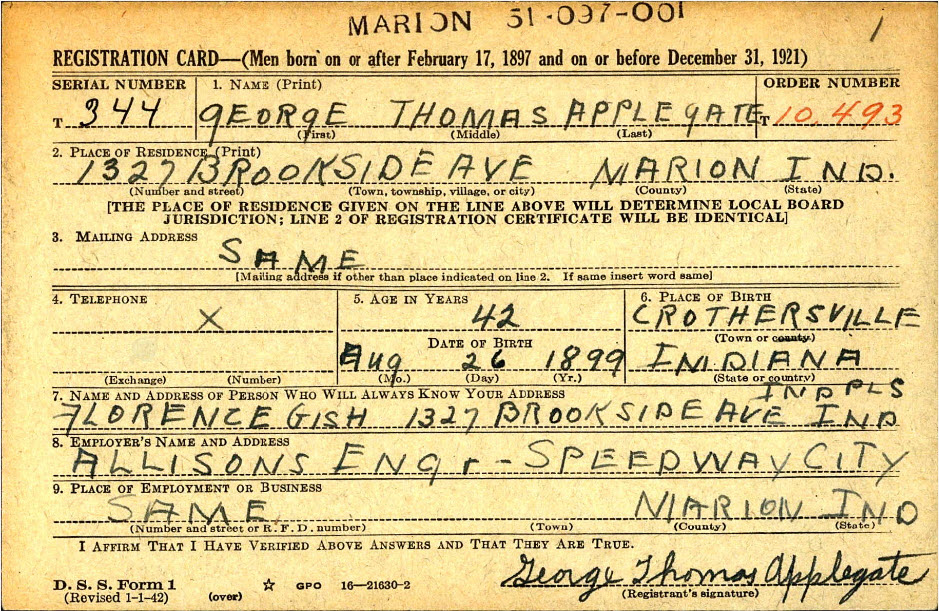 MARION 51-097-001
1
REGISTRATION CARD—(Men born on or after February 17, 1897 and on or before December 31, 1921)
SERIAL NUMBER 1. NAME (Print) ORDER NUMBER
T 344 GEORGE THOMAS APPLEGATE T 10,493
(First) (Middle) (Last)
2. PLACE OF RESIDENCE (Print)
1327 BROOKSIDE AVE MARION IND.
(Number and street) (Town, township, village, or city) (County) (State)
[THE PLACE OF RESIDENCE GIVEN ON THE LINE ABOVE WILL DETERMINE LOCAL BOARD
JURISDICTION; LINE 2 OF REGISTRATION CERTIFICATE WILL BE IDENTICAL]
3. MAILING ADDRESS
SAME
[Mailing address if other than place indicated on line 2. If same insert word same]
4. TELEPHONE 5. AGE IN YEARS 6. PLACE OF BIRTH
X 42 CROTHERSVILLE
(Town or county)
DATE OF BIRTH
Aug 26 1899 INDIANA
(Exchange) (Number) (Mo.) (Day) (Yr.) (State or country)
7. NAME AND ADDRESS OF PERSON WHO WILL ALWAYS KNOW YOUR ADDRESS
INDPLS
FLORENCE GISH 1327 BROOKSIDE AVE IND
8. EMPLOYER'S NAME AND ADDRESS
ALLISONS ENGr - SPEEDWAY CITY
9. PLACE OF EMPLOYMENT OR BUSINESS
SAME MARION IND
(Number and street or R. F. D. number) (Town) (County) (State)
I AFFIRM THAT I HAVE VERIFIED ABOVE ANSWERS AND THAT THEY ARE TRUE.
George Thomas Applegate
(Registrant's signature)
D. S. S. Form 1
(Revised 1-1-42) (over) ☆ GPO 16—21630-2